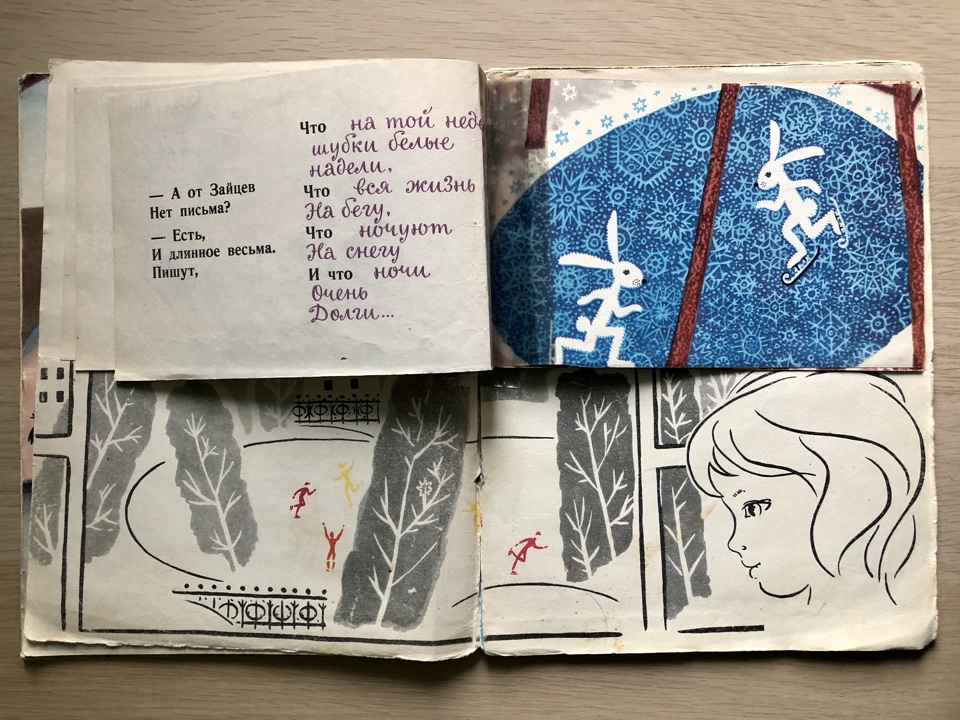 — А от Зайцев
Нет письма?
— Есть,
И длинное весьма.
Пишут,
Что на той
шубки белые
надели,
Что вся жизнь
На бегу,
Что ночуют
На снегу
И что ночи
Очень
Долги...